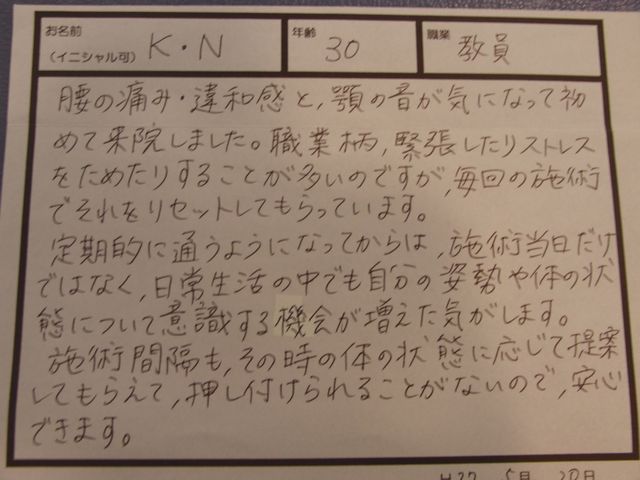 お名前
(イニシャル可) K・N
年齢 30
職業 教員
腰の痛み・違和感と、顎の音が気になって初
めて来院しました。職業柄、緊張したりストレス
をためたりすることが多いのですが、毎回の施術
でそれをリセットしてもらっています。
定期的に通うようになってからは、施術当日だけ
ではなく、日常生活の中でも自分の姿勢や体の状
態について意識する機会が増えた気がします。
施術間隔も、その時の体の状態に応じて提案
してもらえて、押し付けられることがないので、安心
できます。
H27 5月 20日